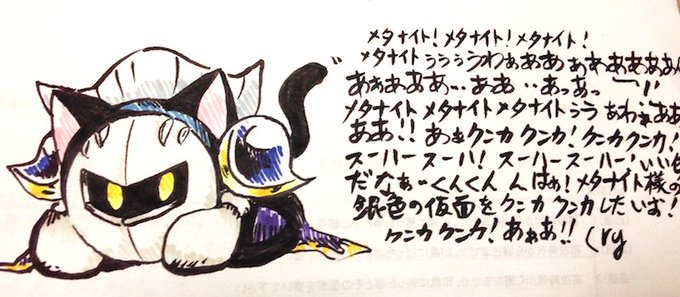 メタナイト!メタナイト!メタナイト!
メタナイトぅぅぅぅうわぁぁぁあぁああぁあぁあん
あぁぁああぁ…ああ…あっあっー!!
メタナイトメタナイトメタナイトぅぅあわぁああ
ああ!!あっぁクンカクンカ!クンカクンカ!
スーハースーハ!スーハースーハー!いい
だなぁ…くんくんんはぁ!メタナイト様の
銀色の仮面をクンカクンカしたいお!
クンカクンカ!あぁあ!!(ry